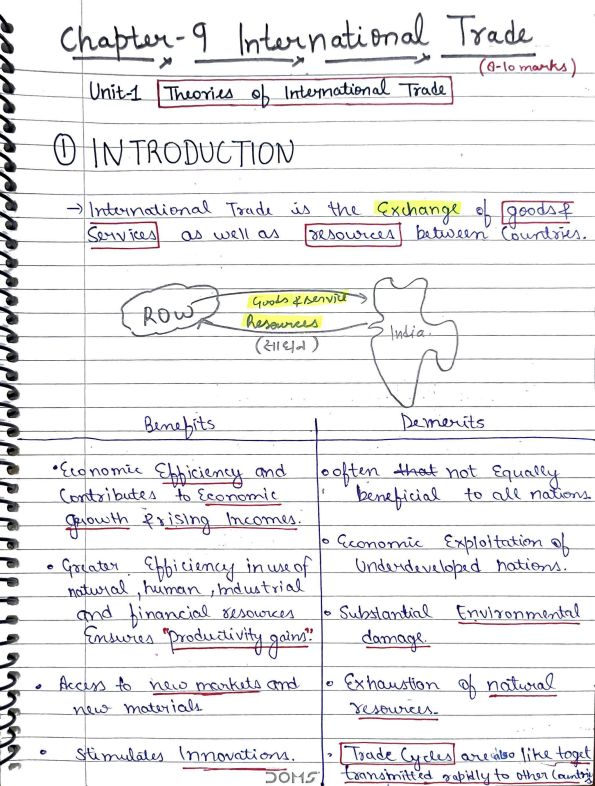 Chapter-9 International Trade
(8-10 marks)
Unit-1 Theories of International Trade
① INTRODUCTION
→ International Trade is the Exchange of goods &
Services as well as resources between Countries.
ROW
Goods & Service
Resources
(साधन)
India.
Benefits
• Economic Efficiency and
Contributes to Economic
growth & rising Incomes.
• Greater Efficiency in use of
natural, human, industrial
and financial resources
Ensures "productivity gains".
• Access to new markets and
new materials
• Stimulates Innovations.
Demerits
• often that not Equally
beneficial to all nations
• Economic Exploitation of
Underdeveloped nations.
• Substantial Environmental
damage.
• Exhaustion of natural
resources.
• Trade Cycles are also like to get
transmitted rapidly to other Country
DOMS